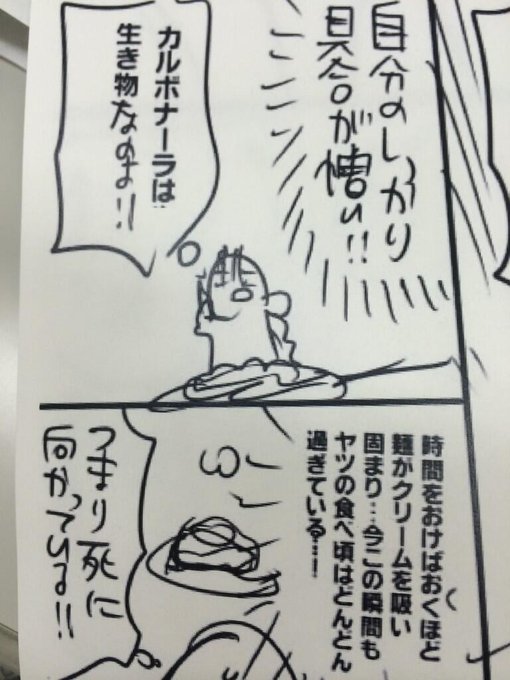 自分のしっかり
具合が憎い!!
カルボナーラは
生き物なのよ!!
時間をおけばおくほど
麺がクリームを吸い
固まり…今この瞬間も
ヤツの食べ頃はどんどん
過ぎている…!
つまり死に
向かっている!!